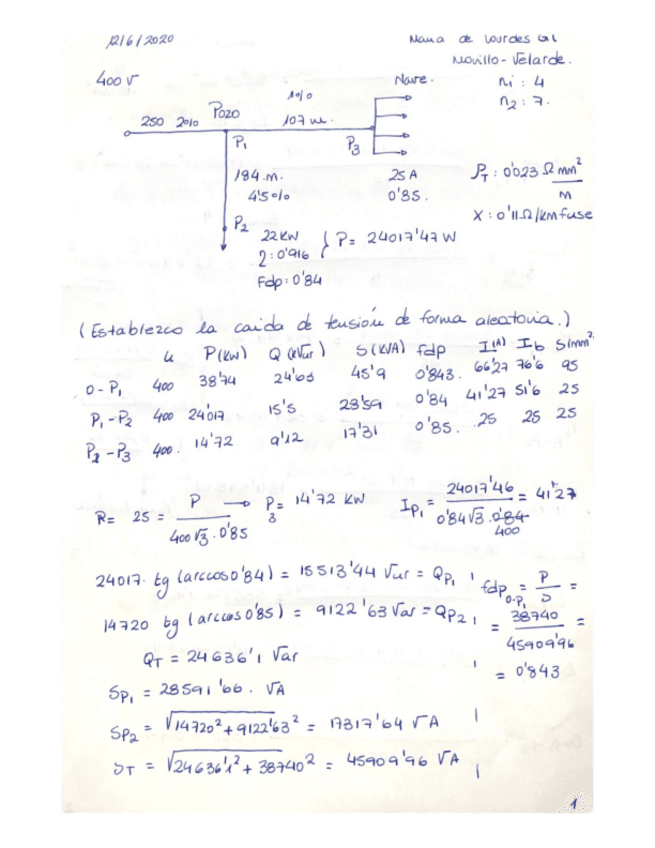 12/6/2020
Maria de Lourdes Gil
Novillo-Velarde.
400 V
Nave.
n1 : 4
n2 : 7.
1%
250 2% Pozo 107 m.
P1
P3
184 m.
4'5%
25 A
0'85.
ρT : 0'023 Ω mm²/m
X : 0'11 Ω/km fase
P2
22 KW
η : 0'916
P = 24017'47 W
Fdp : 0'84
(Establezco la caida de tensión de forma aleatoria.)
u P(kw) Q(kVar) S(kVA) fdp I(A) Ib S(mm²)
0-P1 400 38'74 24'63 45'9 0'843. 66'27 76'6 95
P1-P2 400 24'017 15'5 28'59 0'84 41'27 51'6 25
P2-P3 400. 14'72 9'12 17'31 0'85. 25 25 25
R= 25 = P/(400√3·0'85) → P3 = 14'72 KW
IP1 = 24017'46/(0'84√3·400) = 41'27
24017· tg (arccos 0'84) = 15513'44 Var = QP1
fdp0-P1 = P/S =
14720 tg (arccos 0'85) = 9122'63 Var = QP2
= 38740/45909'96 =
QT = 24636'1 Var
= 0'843
SP1 = 28591'66. VA
SP2 = √(14720² + 9122'63²) = 17317'64 VA
ST = √(24636'1² + 38740²) = 45909'96 VA
1